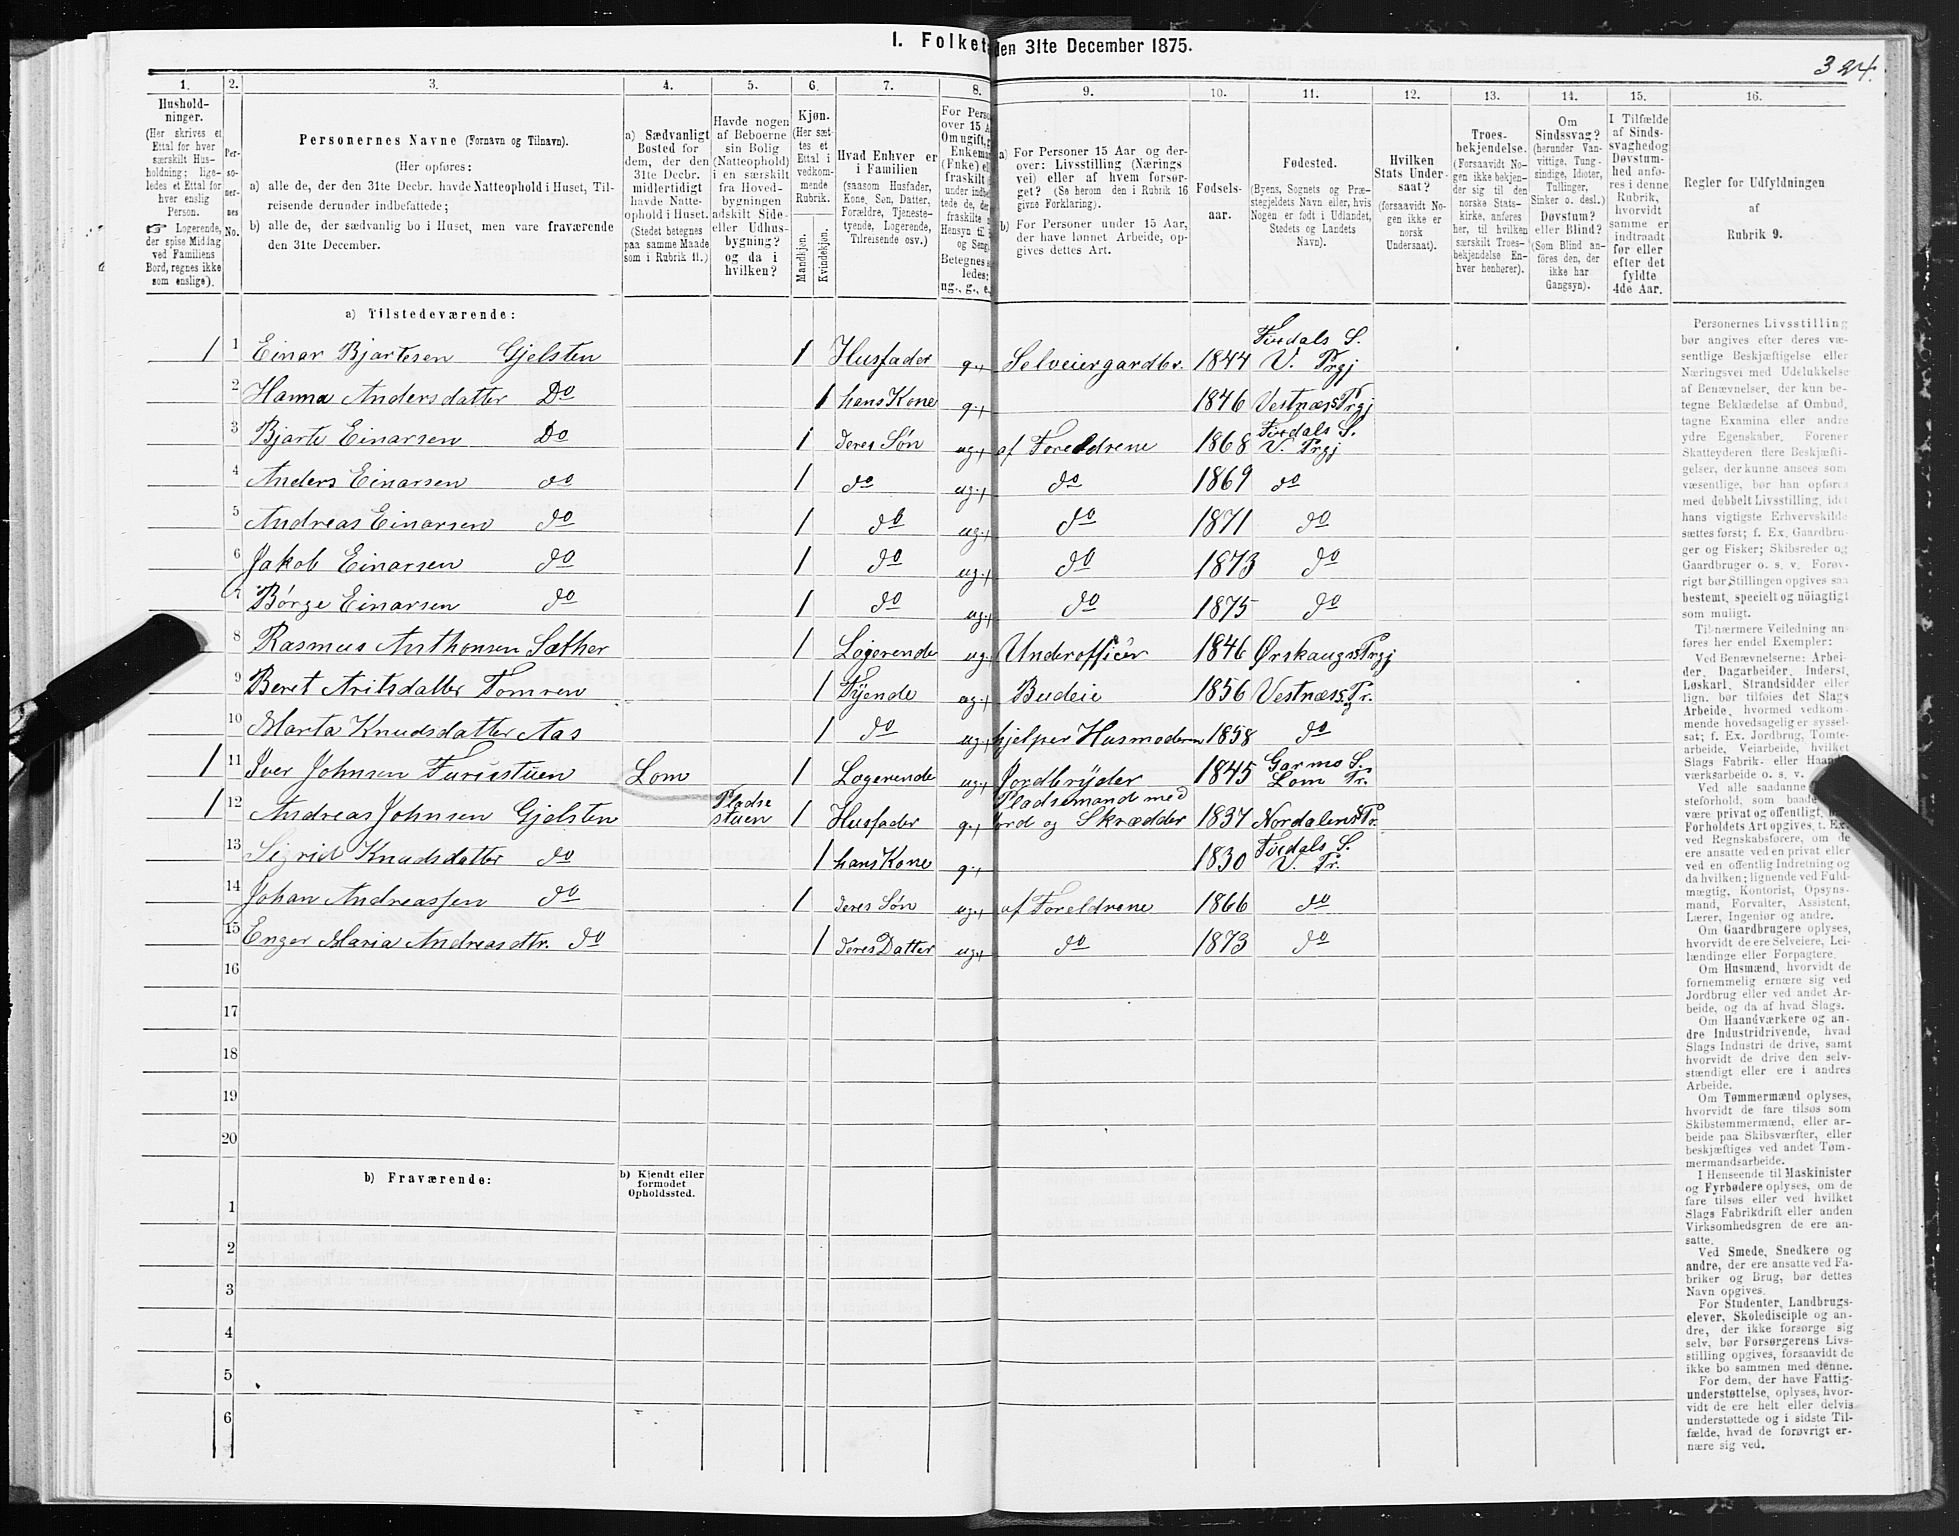 I. Folket den 31te December 1875.
324.
1. 2. 3. 4. 5. 6. 7. 8. 9. 10. 11. 12. 13. 14. 15. 16.
Hushold-
ninger.
(Her skrives et
Ettal for hver
særskilt Hus-
holdning; lige-
ledes et Ettal for
hver enslig
Person.
☞ Logerende,
der spise Middag
ved Familiens
Bord, regnes ikke
som enslige).
Per-
so-
ner-
nes
No.
Personernes Navne (Fornavn og Tilnavn).
(Her opføres:
a) alle de, der den 31te Decbr. havde Natteophold i Huset, Til-
reisende derunder indbefattede;
b) alle de, der sædvanlig bo i Huset, men vare fraværende
den 31te December.
a) Sædvanligt
Bosted for
dem, der den
31te Decbr.
midlertidigt
havde Natte-
ophold i Huset.
(Stedet betegnes
paa samme Maade
som i Rubrik 11.)
Havde nogen
af Beboerne
sin Bolig
(Natteophold)
i en særskilt
fra Hoved-
bygningen
adskilt Side-
eller Udhus-
bygning?
og da i
hvilken?
Kjøn.
(Her sæt-
tes et
Ettal i
vedkom-
mende
Rubrik.
Mandkjøn.
Kvindekjøn.
Hvad Enhver er
i Familien
(saasom Husfader,
Kone, Søn, Datter,
Forældre, Tjeneste-
tyende, Logerende,
Tilreisende osv.)
For Perso
over 15 A
Om ugift, g
Enkemand
(Enke) el
fraskilt
under indbe
tede de, der
fraskilte
Hensyn til
og Seng
Betegnes s
ledes:
ug., g., e.,
a) For Personer 15 Aar og der-
over: Livsstilling (Nærings
vei) eller af hvem forsør-
get? (Se herom den i Rubrik 16
givne Forklaring).
b) For Personer under 15 Aar,
der have lønnet Arbeide, op-
gives dettes Art.
Fødsels-
aar.
Fødested.
(Byens, Sognets og Præ-
stegjeldets Navn eller, hvis
Nogen er født i Udlandet,
Stedets og Landets
Navn).
Hvilken
Stats Under-
saat?
(forsaavidt No-
gen ikke er
norsk
Undersaat).
Troes-
bekjendelse.
(Forsaavidt No-
gen ikke bekjen-
der sig til den
norske Stats-
kirke, anføres
her, til hvilken
særskilt Troes-
bekjendelse En-
hver henhører).
Om
Sindssvag?
(herunder Van-
vittige, Tung-
sindige, Idioter,
Tullinger,
Sinker o. desl.)
Døvstum?
eller Blind?
(Som Blind an-
føres den, der
ikke har
Gangsyn).
I Tilfælde
af Sinds-
svaghed og
Døvstum-
hed anfø-
res i denne
Rubrik,
hvorvidt
samme er
indtraadt
før eller
efter det
fyldte
4de Aar.
Regler for Udfyldningen
af
Rubrik 9.
a) Tilstedeværende:
1 1 Einar Bjartesen Gjelsten 1 Husfader g., Selveiergardbr. 1844 Fiксdals S. V. Prgj
2 Hanna Andersdatter Do 1 hans Kone g., 1846 Vestnæss Prgj
3 Bjarte Einarsen Do 1 deres Søn ug., af Foreldrene 1868 Fixdals S. V. Prgj
4 Anders Einarsen do 1 do ug., do 1869 do
5 Andreas Einarsen do 1 do ug., do 1871 do
6 Jakob Einarsen do 1 do ug., do 1873 do
7 Børge Einarsen do 1 do ug., do 1875 do
8 Rasmus Anthonsen Sæther 1 Logerende ug. Underofficer 1846 Ørskaugs Prgj
9 Beret Aritsdatter Tomren 1 Tyende ug., Budeie 1856 Vestnæss Pr.
10 Marta Knudsdatter Aas 1 do ug., hjelper Husmoderen 1858 do
1 11 Iver Johnsen Furustuen Lom 1 Logerende ug., Jordbryder 1845 Garmo S. Lom Pr.
1 12 Andreas Johnsen Gjelsten Pladse stuen 1 Husfader g., Pladsemand med Jord og Skrædder 1837 Nordalens Pr.
13 Sigrid Knudsdatter do 1 hans Kone g., 1830 Fixdals S. V. Pr.
14 Johan Andreassen do 1 deres Søn ug., af Foreldrene 1866 do
15 Enger Maria Andreasdtr. do 1 deres Datter ug., do 1873 do
16
17
18
19
20
b) Fraværende:
b) Kjendt eller
formodet
Opholdssted.
1
2
3
4
5
6
Personernes Livsstilling
bør angives efter deres væ-
sentlige Beskjæftigelse eller
Næringsvei med Udelukkelse
af Benævnelser, der kun be-
tegne Beklædelse af Ombud,
tagne Examina eller andre
ydre Egenskaber. Forener
Skatteyderen flere Beskjæfti-
gelser, der kunne ansees som
væsentlige, bør han opføres
med dobbelt Livsstilling, idet
hans vigtigste Erhvervskilde
sættes først; f. Ex. Gaardbru-
ger og Fisker; Skibsreder og
Gaardbruger o. s. v. Forøv-
rigt bør Stillingen opgives saa
bestemt, specielt og nøiagtigt
som muligt.
Til nærmere Veiledning an-
føres her endel Exempler:
Ved Benævnelserne: Arbei-
der, Dagarbeider, Inderst,
Løskarl, Strandsidder eller
lign. bør tilføies det Slags
Arbeide, hvormed vedkom-
mende hovedsagelig er syssel-
sat; f. Ex. Jordbrug, Tomte-
arbeide, Veiarbeide, hvilket
Slags Fabrik- eller Haand-
værksarbeide o. s. v.
Ved alle saadanne
steforhold, som baade
være privat og offentlig,
Forholdets Art opgives, t. Ex.
ved Regnskabsførere, om de
ere ansatte ved en privat eller
ved en offentlig Indretning og
da hvilken; lignende ved Fuld-
mægtig, Kontorist, Opsyns-
mand, Forvalter, Assistent,
Lærer, Ingeniør og andre.
Om Gaardbrugere oplyses,
hvorvidt de ere Selveiere, Lei-
lændinge eller Forpagtere.
Om Husmænd, hvorvidt de
fornemmelig ernære sig ved
Jordbrug eller ved andet Ar-
beide, og da af hvad Slags.
Om Haandværkere og an-
dre Industridrivende, hvad
Slags Industri de drive, samt
hvorvidt de drive den selv-
stændigt eller ere i andres
Arbeide.
Om Tømmermænd oplyses,
hvorvidt de fare tilsøs som
Skibstømmermænd, eller ar-
beide paa Skibsværfter, eller
beskjæftiges ved andet Tøm-
mermandsarbeide.
I Henseende til Maskinister
og Fyrbødere oplyses, om de
fare tilsøs eller ved hvilket
Slags Fabrikdrift eller anden
Virksomhedsgren de ere an-
satte.
Ved Smede, Snedkere og
andre, der ere ansatte ved Fa-
briker og Brug, bør dettes
Navn opgives.
For Studenter, Landbrugs-
elever, Skoledisciple og an-
dre, der ikke forsørge sig
selv, bør Forsørgerens Livs-
stilling opgives, forsaavidt de
ikke bo sammen med denne.
For dem, der have Fattig-
understøttelse, oplyses, hvor-
vidt de ere helt eller delvis
understøttede og i sidste Til-
fælde, hvad de forøvrigt er-
nære sig ved.